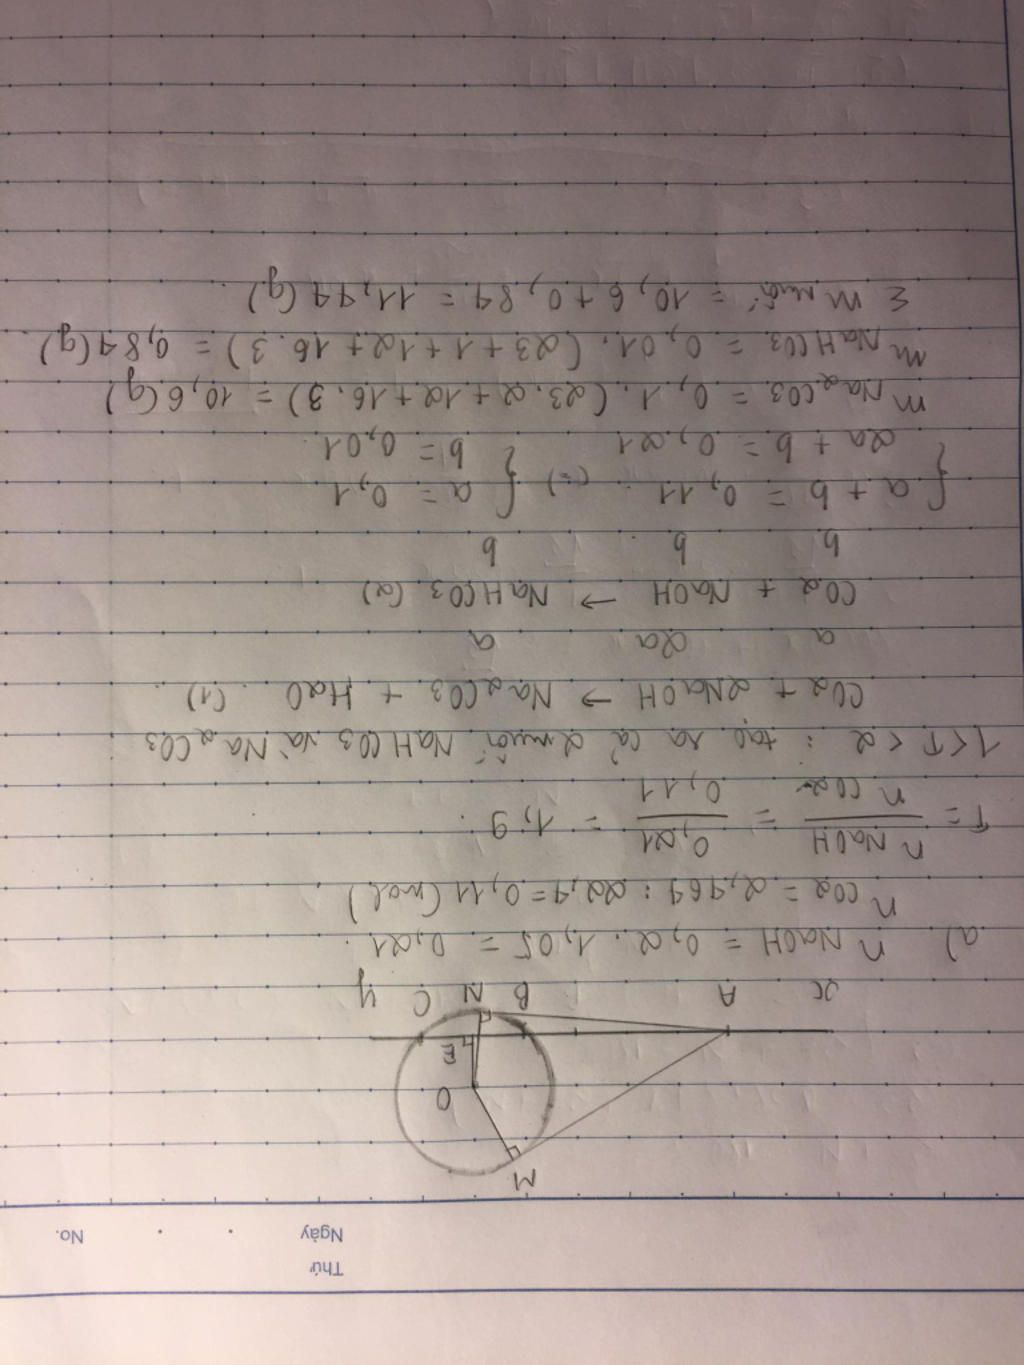 Thứ
Ngày No.
M
O
E
x A B N C y
a) n NaOH = 0,2 . 1,05 = 0,21 .
n CO2 = 2,464 : 22,4 = 0,11 (mol)
T = n NaOH / n CO2 = 0,21 / 0,11 = 1,9 .
1 < T < 2 : tạo ra cả 2 muối NaHCO3 và Na2CO3
CO2 + 2NaOH → Na2CO3 + H2O (1)
a 2a a
CO2 + NaOH → NaHCO3 (2)
b b b
{ a + b = 0,11 (=) { a = 0,1
2a + b = 0,21 b = 0,01
m Na2CO3 = 0,1 . (23.2 + 12 + 16.3) = 10,6 (g)
m NaHCO3 = 0,01 . (23 + 1 + 12 + 16.3) = 0,84 (g)
Σ m muối = 10,6 + 0,84 = 11,44 (g) .